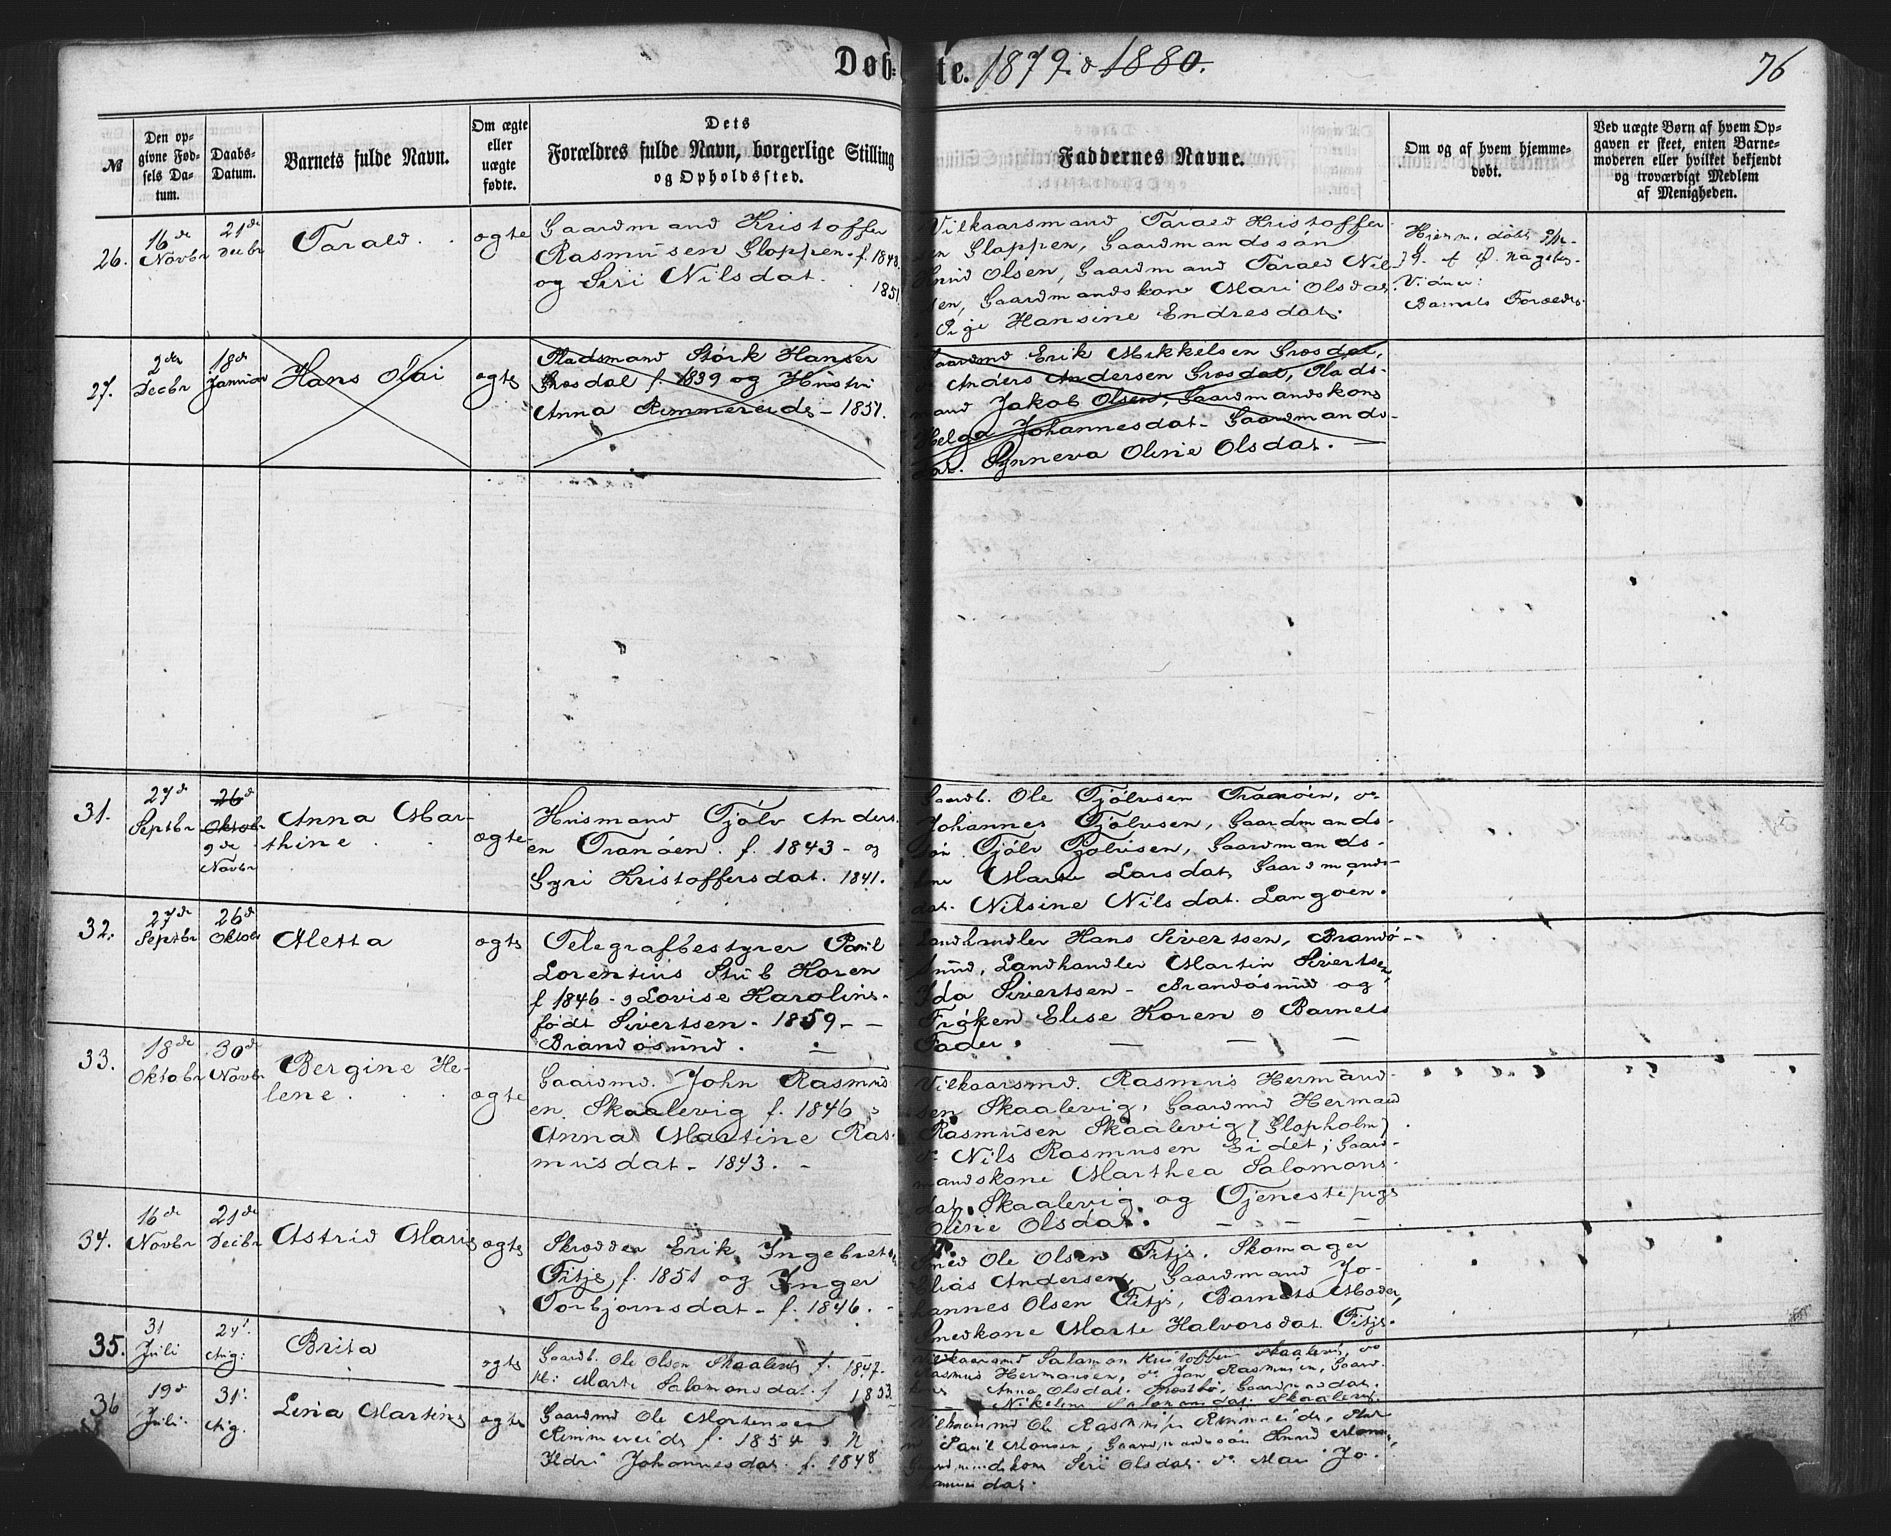 Døbte. 1879. & 1880. 76
№
Den opgivne Fødsels Datum.
Daabs-Datum.
Barnets fulde Navn.
Om ægte eller uægte fødte.
Dets Forældres fulde Navn, borgerlige Stilling og Opholdssted.
Faddernes Navne.
Om og af hvem hjemmedøbt.
Ved uægte Børn af hvem Opgaven er skeet, enten Barnemoderen eller hvilket bekjendt og troværdigt Medlem af Menigheden.
26.
16de
Novbr
21de
Decbr
Tarald.
ægte
Gaardmand Kristoffer
Rasmusen Gloppen. f. 1848.
og Siri Nilsdat. 1851
Vilkaarsmand Tarald Kristoffer
sen Gloppen, Gaardmandssøn
Knud Olsen, Gaardmand Tarald Nil
sen, Gaardmandskone Mari Olsdat,
Pige Hansine Endresdat.
Hjemmedøbt
Vidner:
Barnets Forældre
27.
2den
Decbr
18de
Januar
Hans Olai
ægte
Pladsmand Størk Hansen
Grosdal f. 1839 og Hustru
Anna Rimmereide - 1851.
Gaardmd Erik Mikkelsen Grosdal,
Anders Andersen Grosdal, Plads-
mand Jakob Olsen, Gaardmandskone
Helga Johannesdat. Gaardmands-
dat. Synneva Oline Olsdat.
31.
27de
Septbr
26de
Oktobr
9de
Novbr
Anna Mar-
thine
ægte
Husmand Tjølv Anders
en Tranøen. f. 1843 - og
Gyri Kristoffersdat. 1841.
Gaardb. Ole Tjølvsen Tranøen, do
Johannes Tjølvsen, Gaardmands-
søn Tjølv Tjølvsen, Gaardmands-
kone Marta Larsdat, Gaardmands-
dat. Nilsine Nilsdat. Langøen.
32.
27de
Septbr
26de
Oktobr
Aletta
ægte
Telegrafbestyrer Paul
Lorentius Stub Koren
f 1846 - o Lovise Karoline
født Sivertsen. 1859 - -
Brandøsund.
Landhandler Hans Sivertsen, Brandø-
sund, Landhandler Martin Sivertsen,
Ida Sivertsen - Brandøsund og
Frøken Elise Koren o Barnets
Fader.
33.
18de
Oktobr
30de
Novbr
Bergine He-
lene.
ægte
Gaardmd. John Rasmus
en Skaalevig f. 1846 o
Anna Martine Ras-
musdat - 1843. -
Vilkaarsmd. Rasmus Hermand-
sen Skaalevig, Gaardmd Hermand
Rasmusen Skaalevig (Glopholm)
do Nils Rasmusen Eidet, Gaard-
mandskone Marthea Salomons-
dat. Skaalevig og Tjenestepige
Oline Olsdat.
34.
16de
Novbr
21de
Decbr
Astrid Marie
ægte
Skrædder Erik Ingebrets
Fitje, f. 1851 og Inger
Torbjørnsdat - f. 1846. -
Smed Ole Olsen Fitje. Skomager
Elias Andersen, Gaardmand Jo-
hannes Olsen Fitje, Barnets Moder,
Smedkone Marte Halvorsdat. Fitje.
35.
31
Juli
24'
Aug:
Brita
ægte
Gaardb. Ole Olsen Skaalevig f. 1847.
H: Marta Salomonsdat. f 1853
Vilkaarsmd Salamon Kristoffers Skaalevig, do
Rasmus Hermansen, do Jan Rasmusen, Gaard-
kone Anna Olsdat. Gaardmandsdat.
Nikoline Salomonsdat. Skaalevig.
36
19d
Juli
31'
Aug.
Lina Martine
ægte
Gaardmd Ole Mortensen
Rimmereide f. 1854 o H
Ildri Johannesdat. f. 1848
Vilkaarsmd Ole Rasmusen Rimmereide,
Paul Monsen, Gaardmandssøn Knud
Gaardmandskone Siri Olsdat. do Mari Jo-
hannesdat.